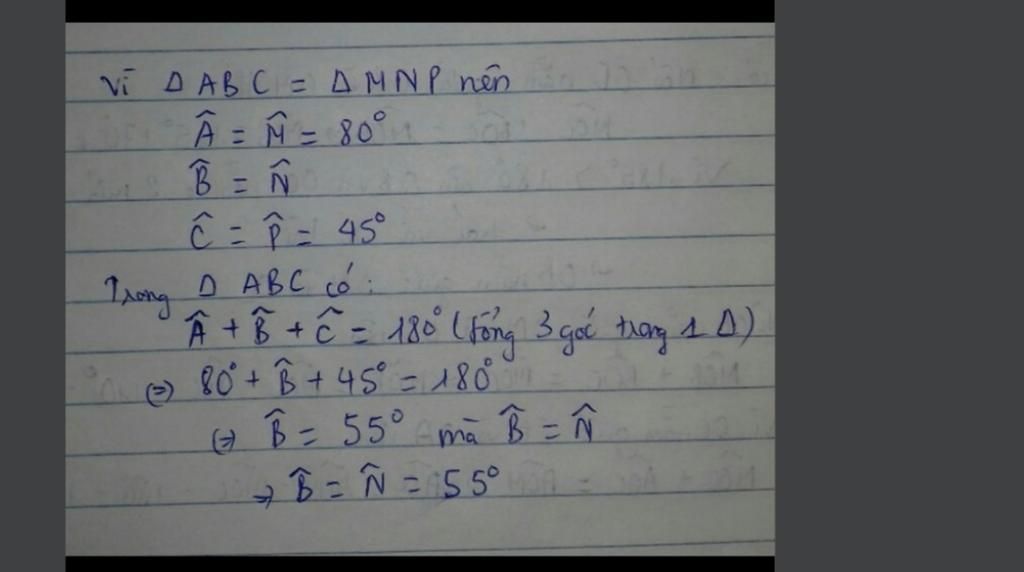 Vì Δ ABC = Δ MNP nên
Â = M̂ = 80°
B̂ = N̂
Ĉ = P̂ = 45°
Trong Δ ABC có:
Â + B̂ + Ĉ = 180° (tổng 3 góc trong 1 Δ)
(=) 80° + B̂ + 45° = 180°
(=) B̂ = 55° mà B̂ = N̂
→ B̂ = N̂ = 55°